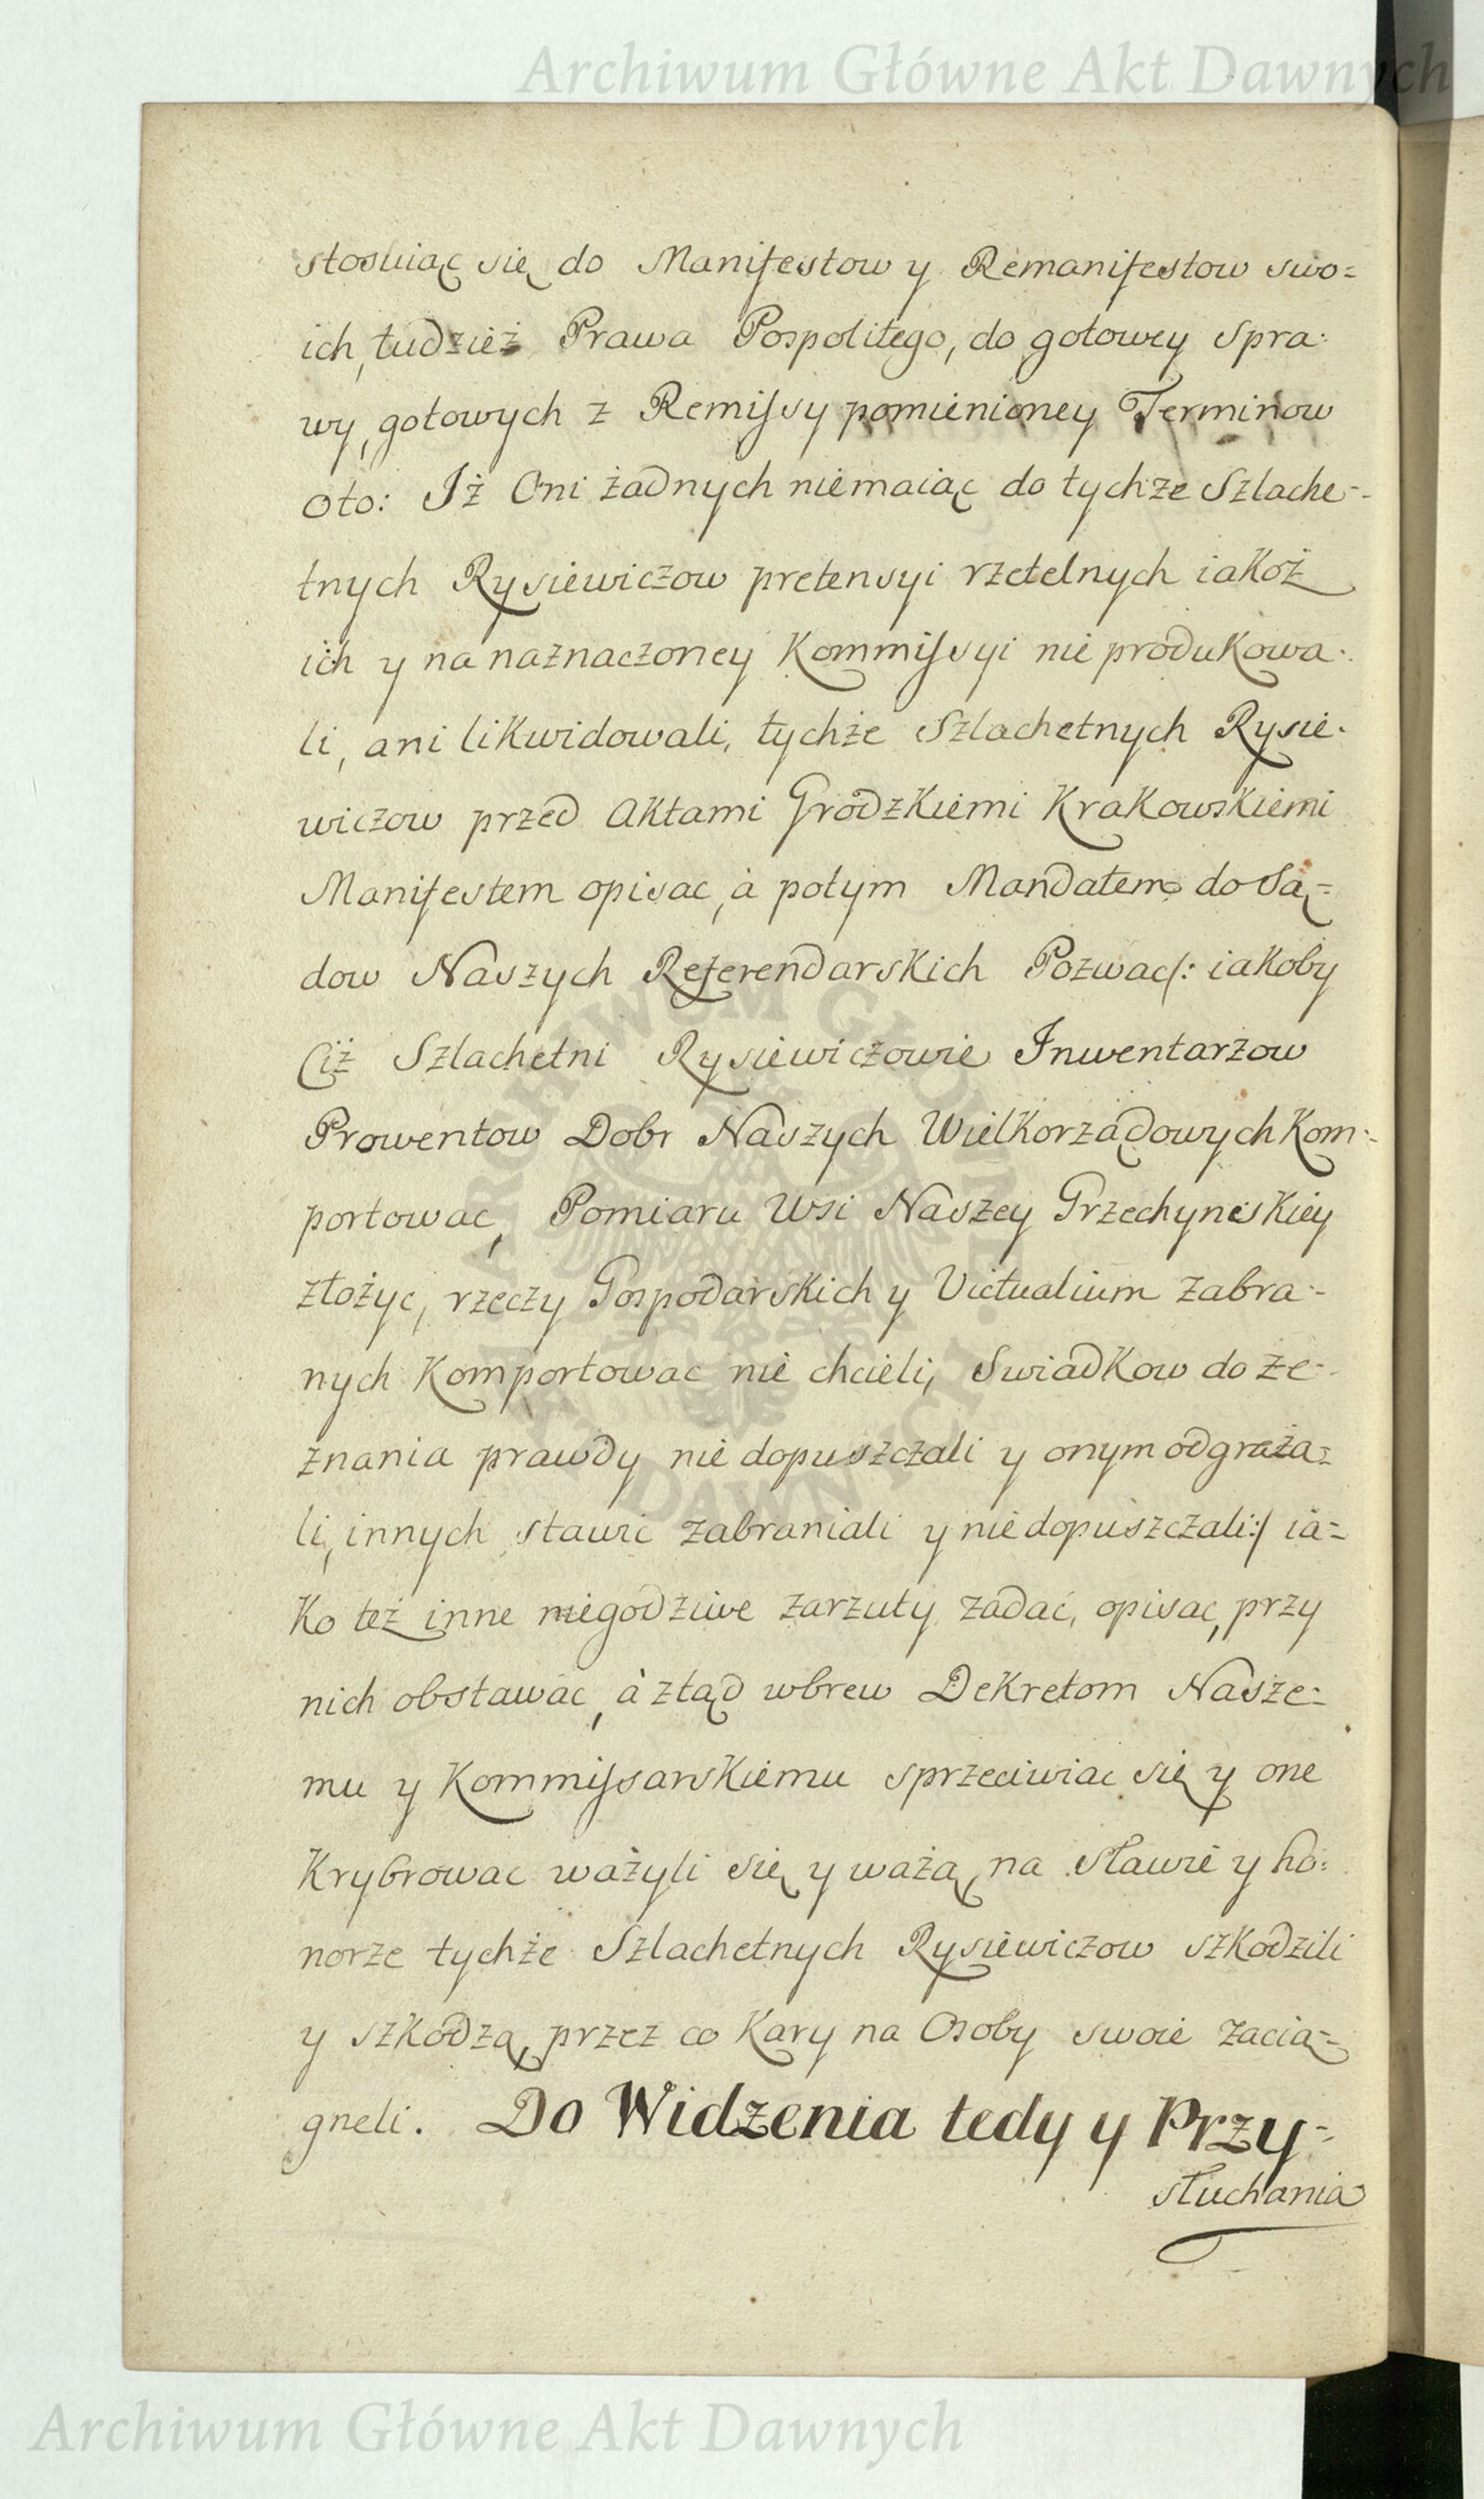 Archiwum Główne Akt Dawnych
stosuiąc się do Manifestow y Remanifestow swo=
ich, tudzież Prawa Pospolitego, do gotowey Spra:
wy, gotowych z Remissy pomienioney Terminow
oto: Iż Oni żadnych niemaiąc do tychże Szlache=
tnych Rysiewiczow pretensyi rzetelnych iakoż
ich y na naznaczoney Kommissyi nie produkowa:
li, ani likwidowali, tychże Szlachetnych Rysie:
wiczow przed Aktami Grodzkiemi Krakowskiemi
Manifestem opisac, à potym Mandatem do Są=
dow Naszych Referendarskich Pozwac/: iakoby
Ciż Szlachetni Rysiewiczowie Inwentarzow
Prowentow Dobr Naszych Wielkorządowych Kom:
portowac, Pomiaru Wsi Naszey Grzechynskiey
złożyc, rzeczy Gospodarskich y Victualium zabra=
nych Komportowac nie chcieli, Swiadkow do ze=
znania prawdy nie dopuszczali y onym odgraża=
li, innych stawic zabraniali y nie dopuszczali:/ ia=
ko też inne niegodziwe zarzuty zadać, opisac, przy
nich obstawac, à ztąd wbrew Dekretom Nasze=
mu y Kommissarskiemu sprzeciwiac się y one
Krybrowac ważyli się y ważą, na sławie y ho:
norze tychże Szlachetnych Rysiewiczow szkodzili
y szkodzą, przez co Kary na Osoby swoie zacią=
gneli. Do Widzenia tedy y Przy=
słuchania
Archiwum Główne Akt Dawnych